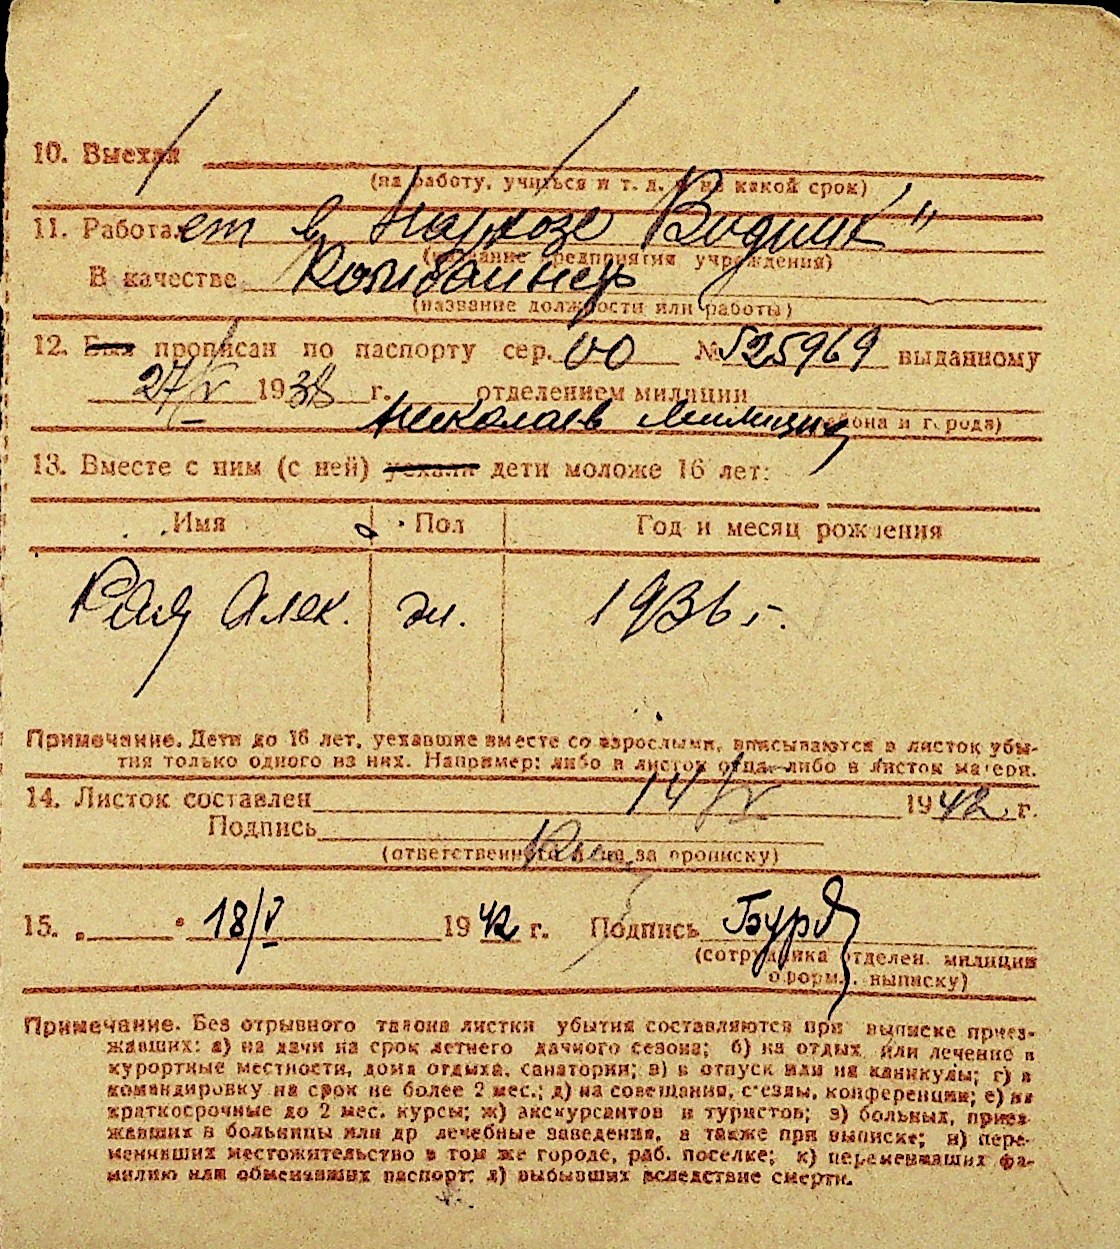 10. Выехал
(на работу, учиться и т. д. и на какой срок)
11. Работает в
(название предприятия учреждения)
В качестве Комбайнер
(название должности или работы)
12. Был прописан по паспорту сер. № 525969 выданному
27/V 1938 г. отделением милиции
Николаев милиции района и города)
13. Вместе с ним (с ней) уехали дети моложе 16 лет:
Имя Пол Год и месяц рождения
Рая Алек. 1936 г.
Примечание. Дети до 16 лет, уехавшие вместе со взрослыми, вписываются в листок убы-
тия только одного из них. Например: либо в листок отца, либо в листок матери.
14. Листок составлен 14/V 1942 г.
Подпись
(ответственного лица за прописку)
15. „ “ 18/V 1942 г. Подпись
(сотрудника отделен. милиции
оформ. выписку)
Примечание. Без отрывного талона листки убытия составляются при выписке приез-
жавших: а) на дачи на срок летнего дачного сезона; б) на отдых или лечение в
курортные местности, дома отдыха, санатории; в) в отпуск или на каникулы; г) в
командировку на срок не более 2 мес.; д) на совещания, с'езды, конференции; е) на
краткосрочные до 2 мес. курсы; ж) экскурсантов и туристов; з) больных, приез-
жавших в больницы или др лечебные заведения, а также при выписке; и) пере-
менивших местожительство в том же городе, раб. поселке; к) переменивших фа-
милию или обменявших паспорт; л) выбывших вследствие смерти.